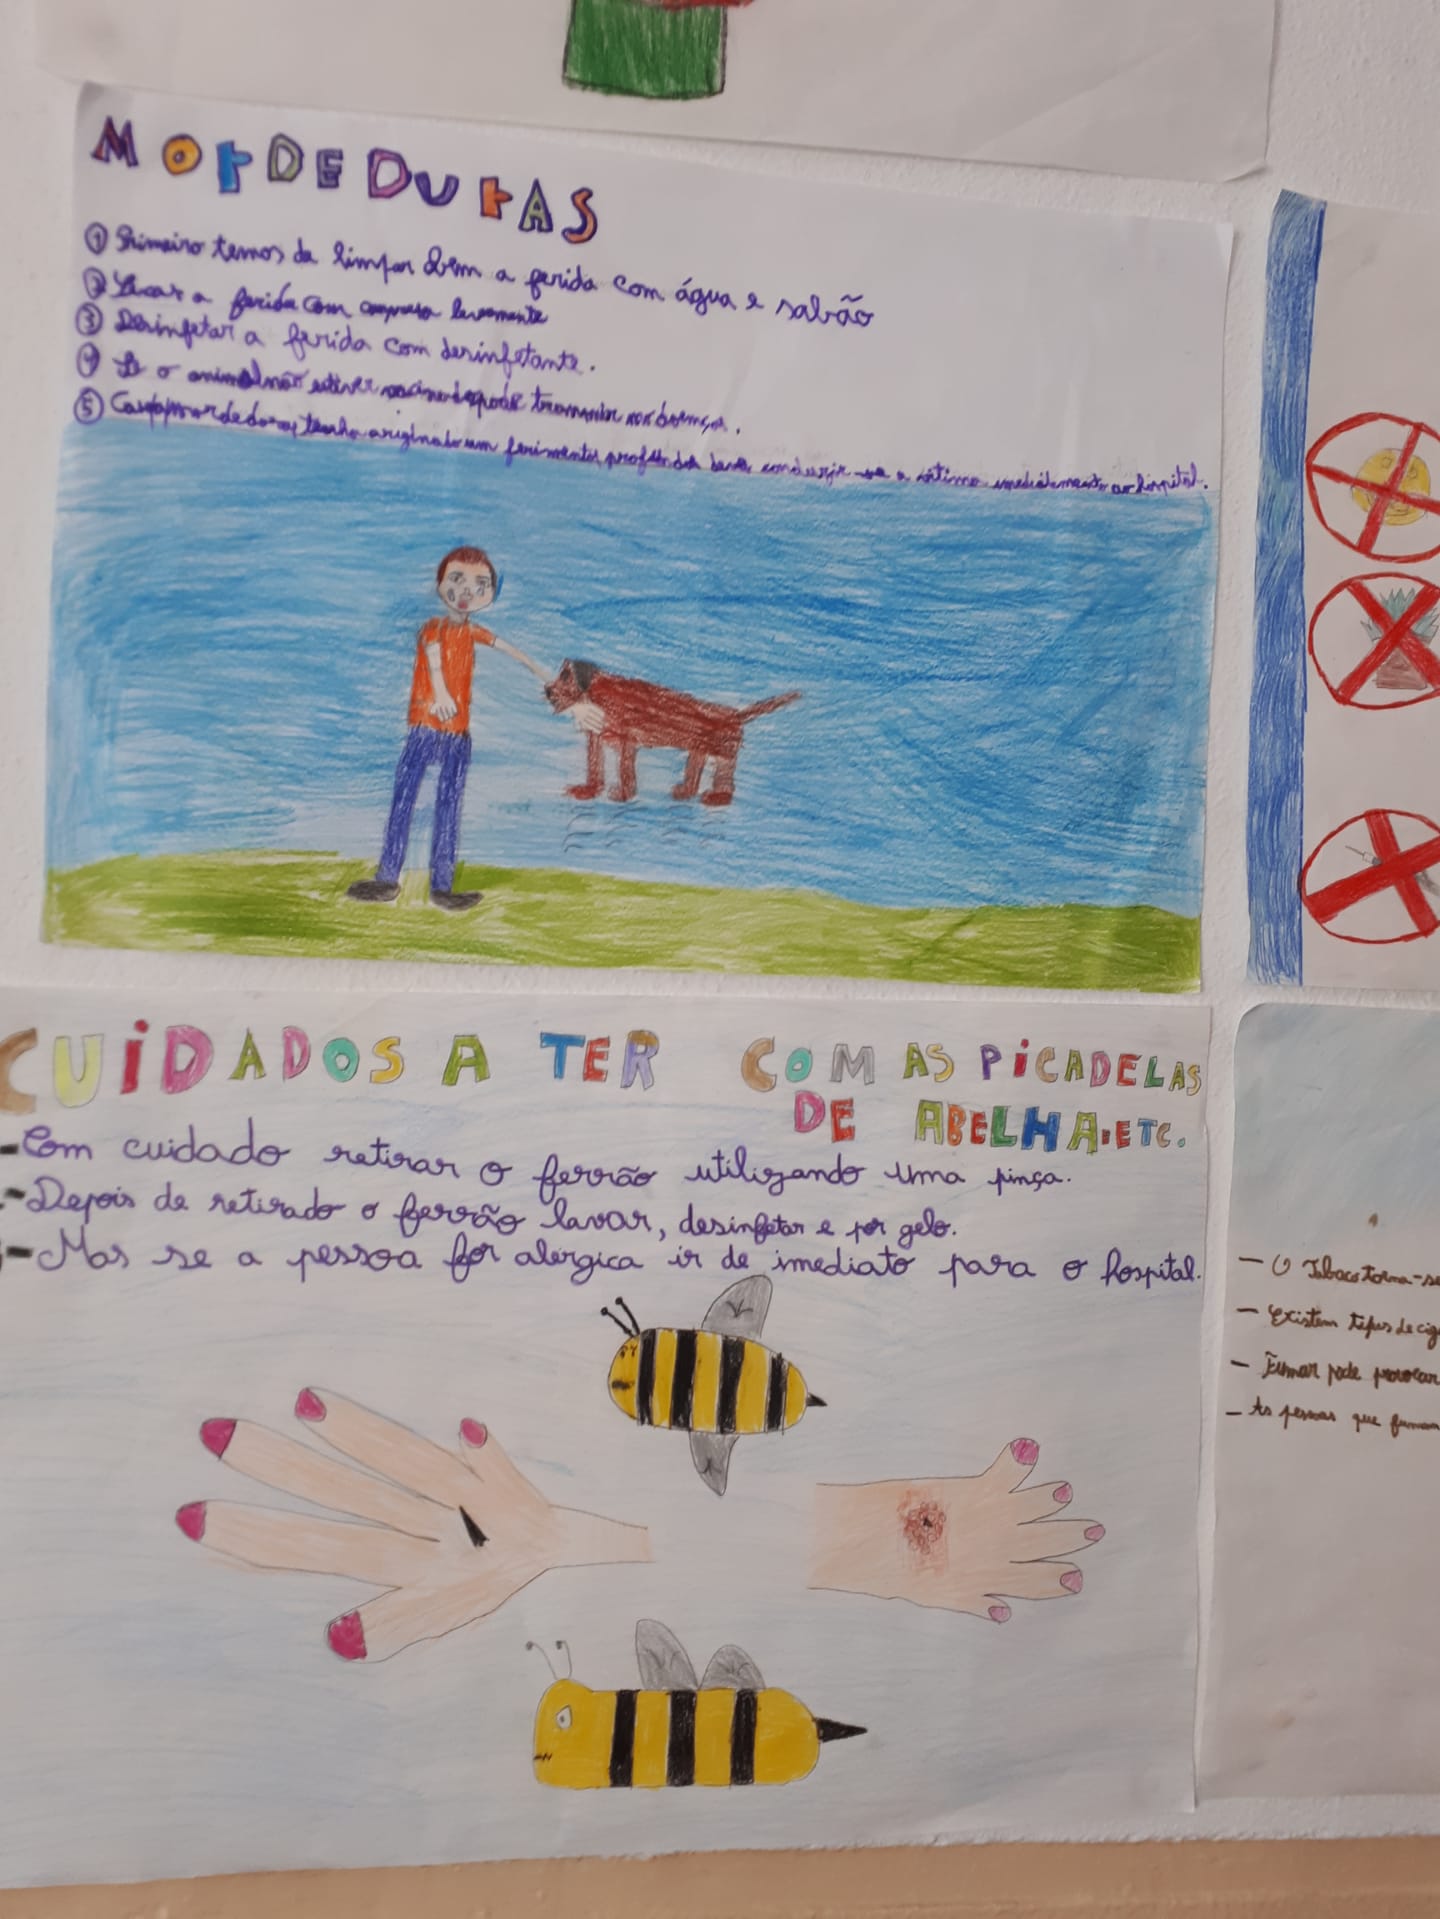 MORDEDURAS
① Primeiro temos de limpar bem a ferida com água e sabão
② Secar a ferida com compressa levemente
③ Desinfetar a ferida com desinfetante.
④ Se o animal não estiver vacinado pode transmitir nos doenças.
⑤ Caso a mordedora tenha originado um ferimento profundo deve conduzir-se a vítima imediatamente ao hospital.
CUIDADOS A TER COM AS PICADELAS
DE ABELHA.ETC.
-Com cuidado retirar o ferrão utilizando uma pinça.
-Depois de retirado o ferrão lavar, desinfetar e pôr gelo.
-Mas se a pessoa for alérgica ir de imediato para o hospital.
- O Tabaco torna-se
- Existem tipos de cig
- Fumar pode provocar
- As pessoas que fumam